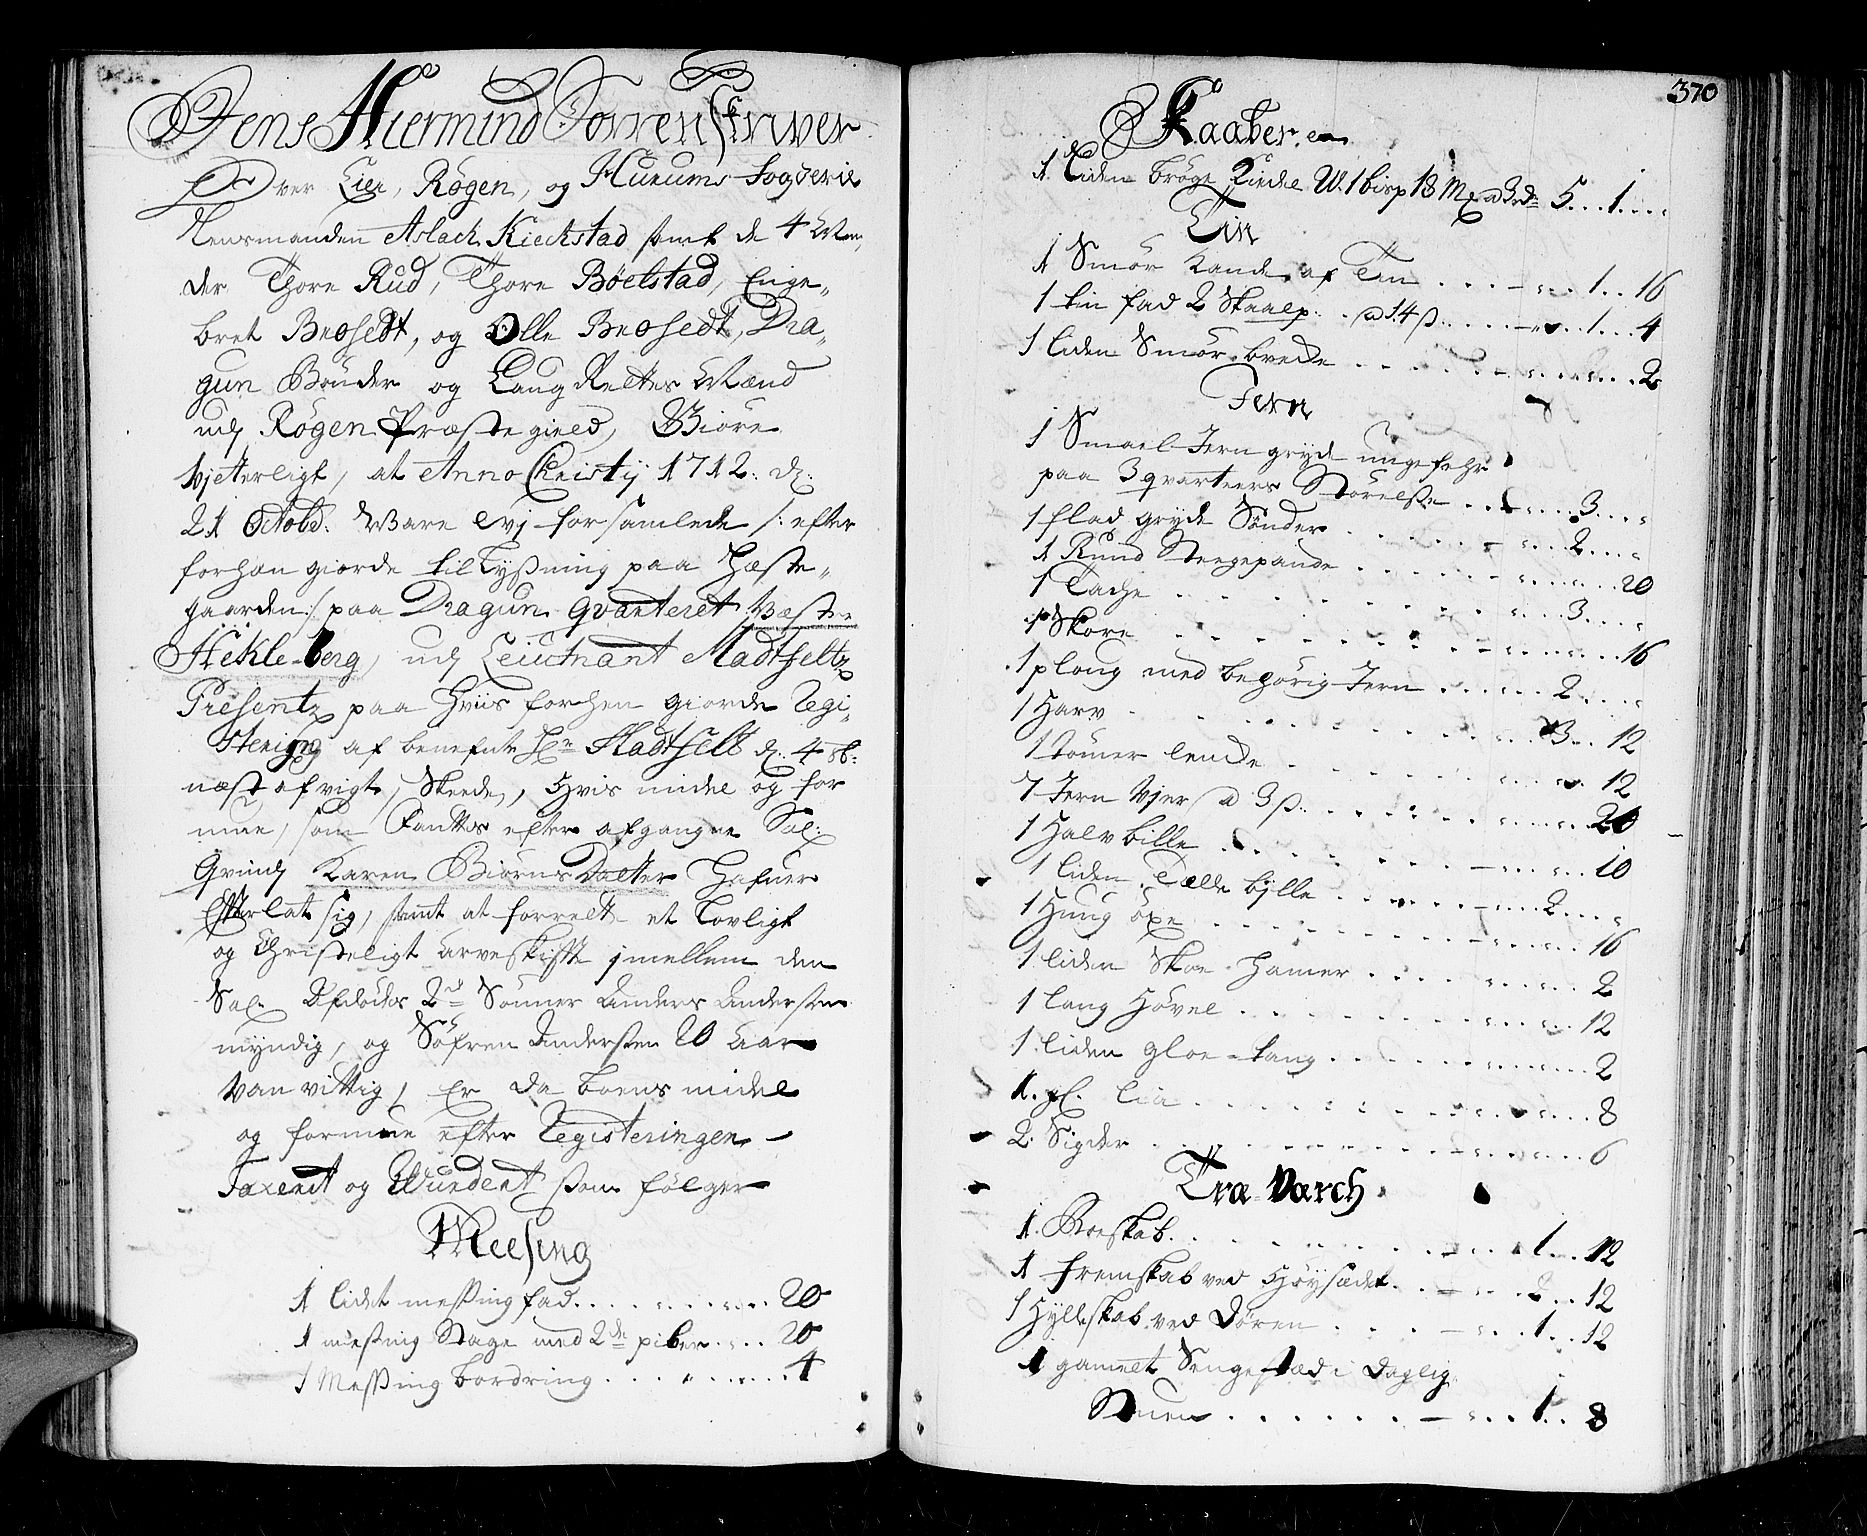 Jens Hiermind Sorrenskriver
Over Lier, Røgen, og Hurums Fogderie
Lensmanden Aslach Kiechstad samt de 4 Mæn
der Thore Rud, Thore Bøelstad, Enge„
bret Brøsedt, og Olle Brøsedt, Dra„
gun Bønder og Laug Rettes Mænd
udj Røgen Præstegield, Giøre
vjterligt, at Anno Christij 1712. d:
21 Octobr. Ware wj forsamlede /: efter
forhan giorde tillysning paa Thæste„
gaarden:/ paa Dragun Qvarteret Væstre
Hekleberg, udj Leiutnant Madtfeltz
Presentz paa hvis forhen giorde Regi„
stering af benefnte Hr. Madtfelt d. 4 8b:
næst afvigt, Skeede, hvis midel og for
mue, som fantes efter afgangne Sal:
Qvind Karen Biørns Daatter hafuer
Efterlat sig, samt at forrette et Lovligt
og Christeligt arveskifte jmellem den
Sal. Afdødes 2de Sønner Anders Andersen
myndig, og Søfren Andersen 20 Aar
vanvittig, Er da boens midel
og formue efter Registeringen
Taxerit og Wurderit som følger
Messing
1 lidet messing fad . . . 20
1 messing Stage med 2de piber . . . 20
1 Messing bordring . . . 4
370
Kaaber
1 Liden brøge Kiedel W. 1 bisp 18 Mk a 3 rd 5 . . 1 . .
Tin
1 Smør Kande af Tin . . . 1 . . 16
1 tin fad 2 Skaalp: a 14 s . . . 1 . . 4
1 liden Smør brede . . . 2
Jern
1 Smael Jern gryde ungefehr
paa 3 qvarteers Størelse . . . 3 . .
1 flad gryde Sønder . . . 2 . .
1 Rund Steegepande . . . 20
1 Tache . . . 3 . .
1 Skore . . . 16
1 ploug med behørig Jern . . . 2 . .
1 Harv . . . 3 . . 12
1 tømer lencke . . . 12
7 Jern Vjer a 3 s . . . 20
1 Halv bille . . . 10
1 liden Tælle bjlle . . . 2 . .
1 Hug øxe . . . 16
1 liden Skoe hamer . . . 2
1 lang Høvel . . . 12
1 liden gloe-tang . . . 2
1 gl. lia . . . 8
2 Sigder . . . 6
Træ Varch
1 Roeskab . . . 1 . . 12
1 fremskab ved Høysædet . . . 2 . . 12
1 Hylleskab ved Døren . . . 1 . . 12
1 gamelt Sengested i daglig
Stuen . . . 1 . . 8